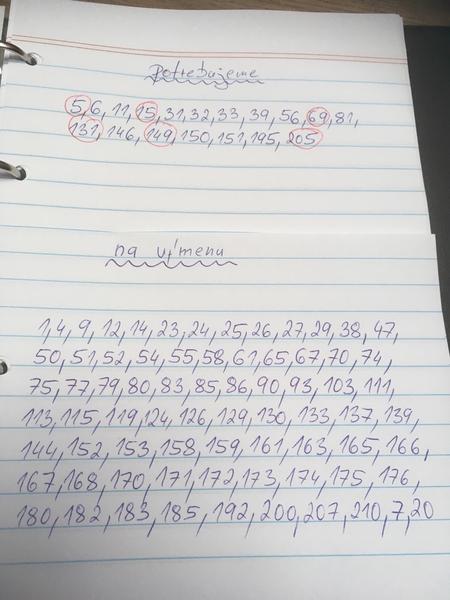 potrebujeme
5, 6, 11, 15, 31, 32, 33, 39, 56, 69, 81,
131, 146, 149, 150, 151, 195, 205
na výmenu
1, 4, 9, 12, 14, 23, 24, 25, 26, 27, 29, 38, 47,
50, 51, 52, 54, 55, 58, 61, 65, 67, 70, 74,
75, 77, 79, 80, 83, 85, 86, 90, 93, 103, 111,
113, 115, 119, 124, 126, 129, 130, 133, 137, 139,
144, 152, 153, 158, 159, 161, 163, 165, 166,
167, 168, 170, 171, 172, 173, 174, 175, 176,
180, 182, 183, 185, 192, 200, 207, 210, 7, 20